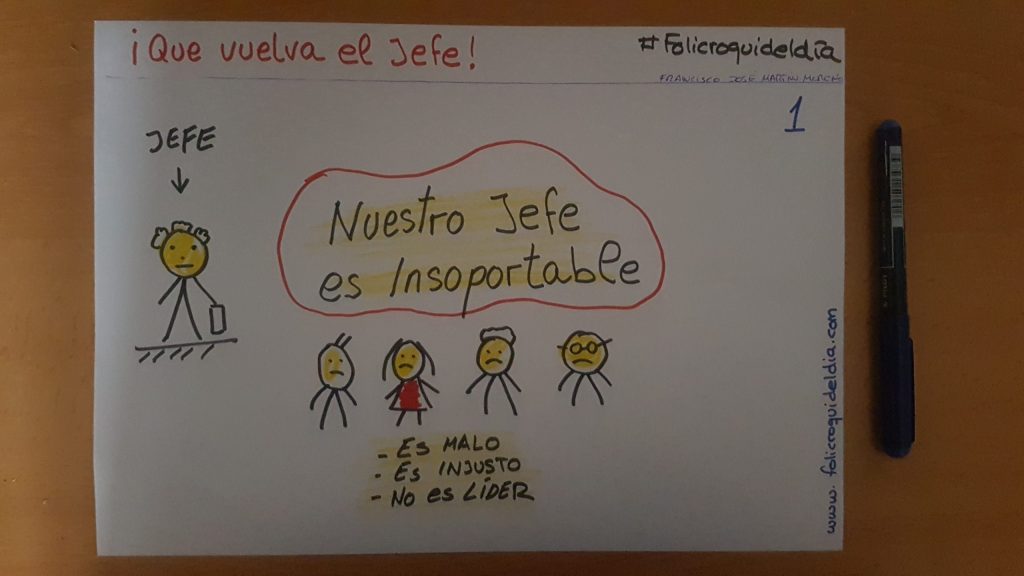 ¡Que vuelva el Jefe!
#Folicroquideldía
FRANCISCO JOSÉ MARTÍN MORENO
1
JEFE
Nuestro Jefe
es Insoportable
- Es MALO
- Es INJUSTO
- No es LÍDER
www.folicroquideldia.com